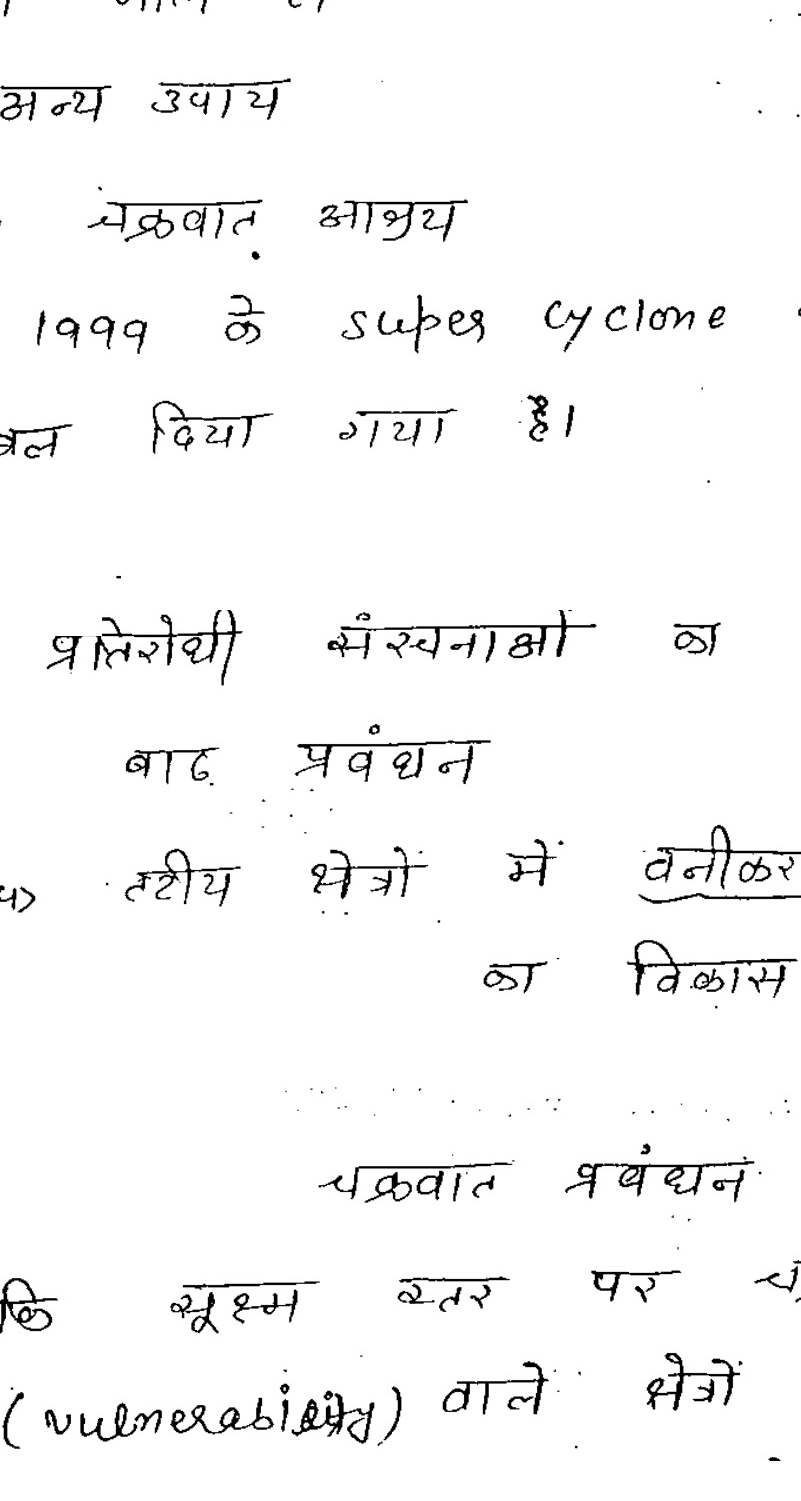 अन्य उपाय
चक्रवात आश्रय
1999 के super cyclone
बल दिया गया है।
प्रतिरोधी संरचनाओं का
बाढ़ प्रबंधन
तटीय क्षेत्रों में वनीकर
का विकास
चक्रवात प्रबंधन
कि सूक्ष्म स्तर पर
(vulnerability) वाले क्षेत्रों